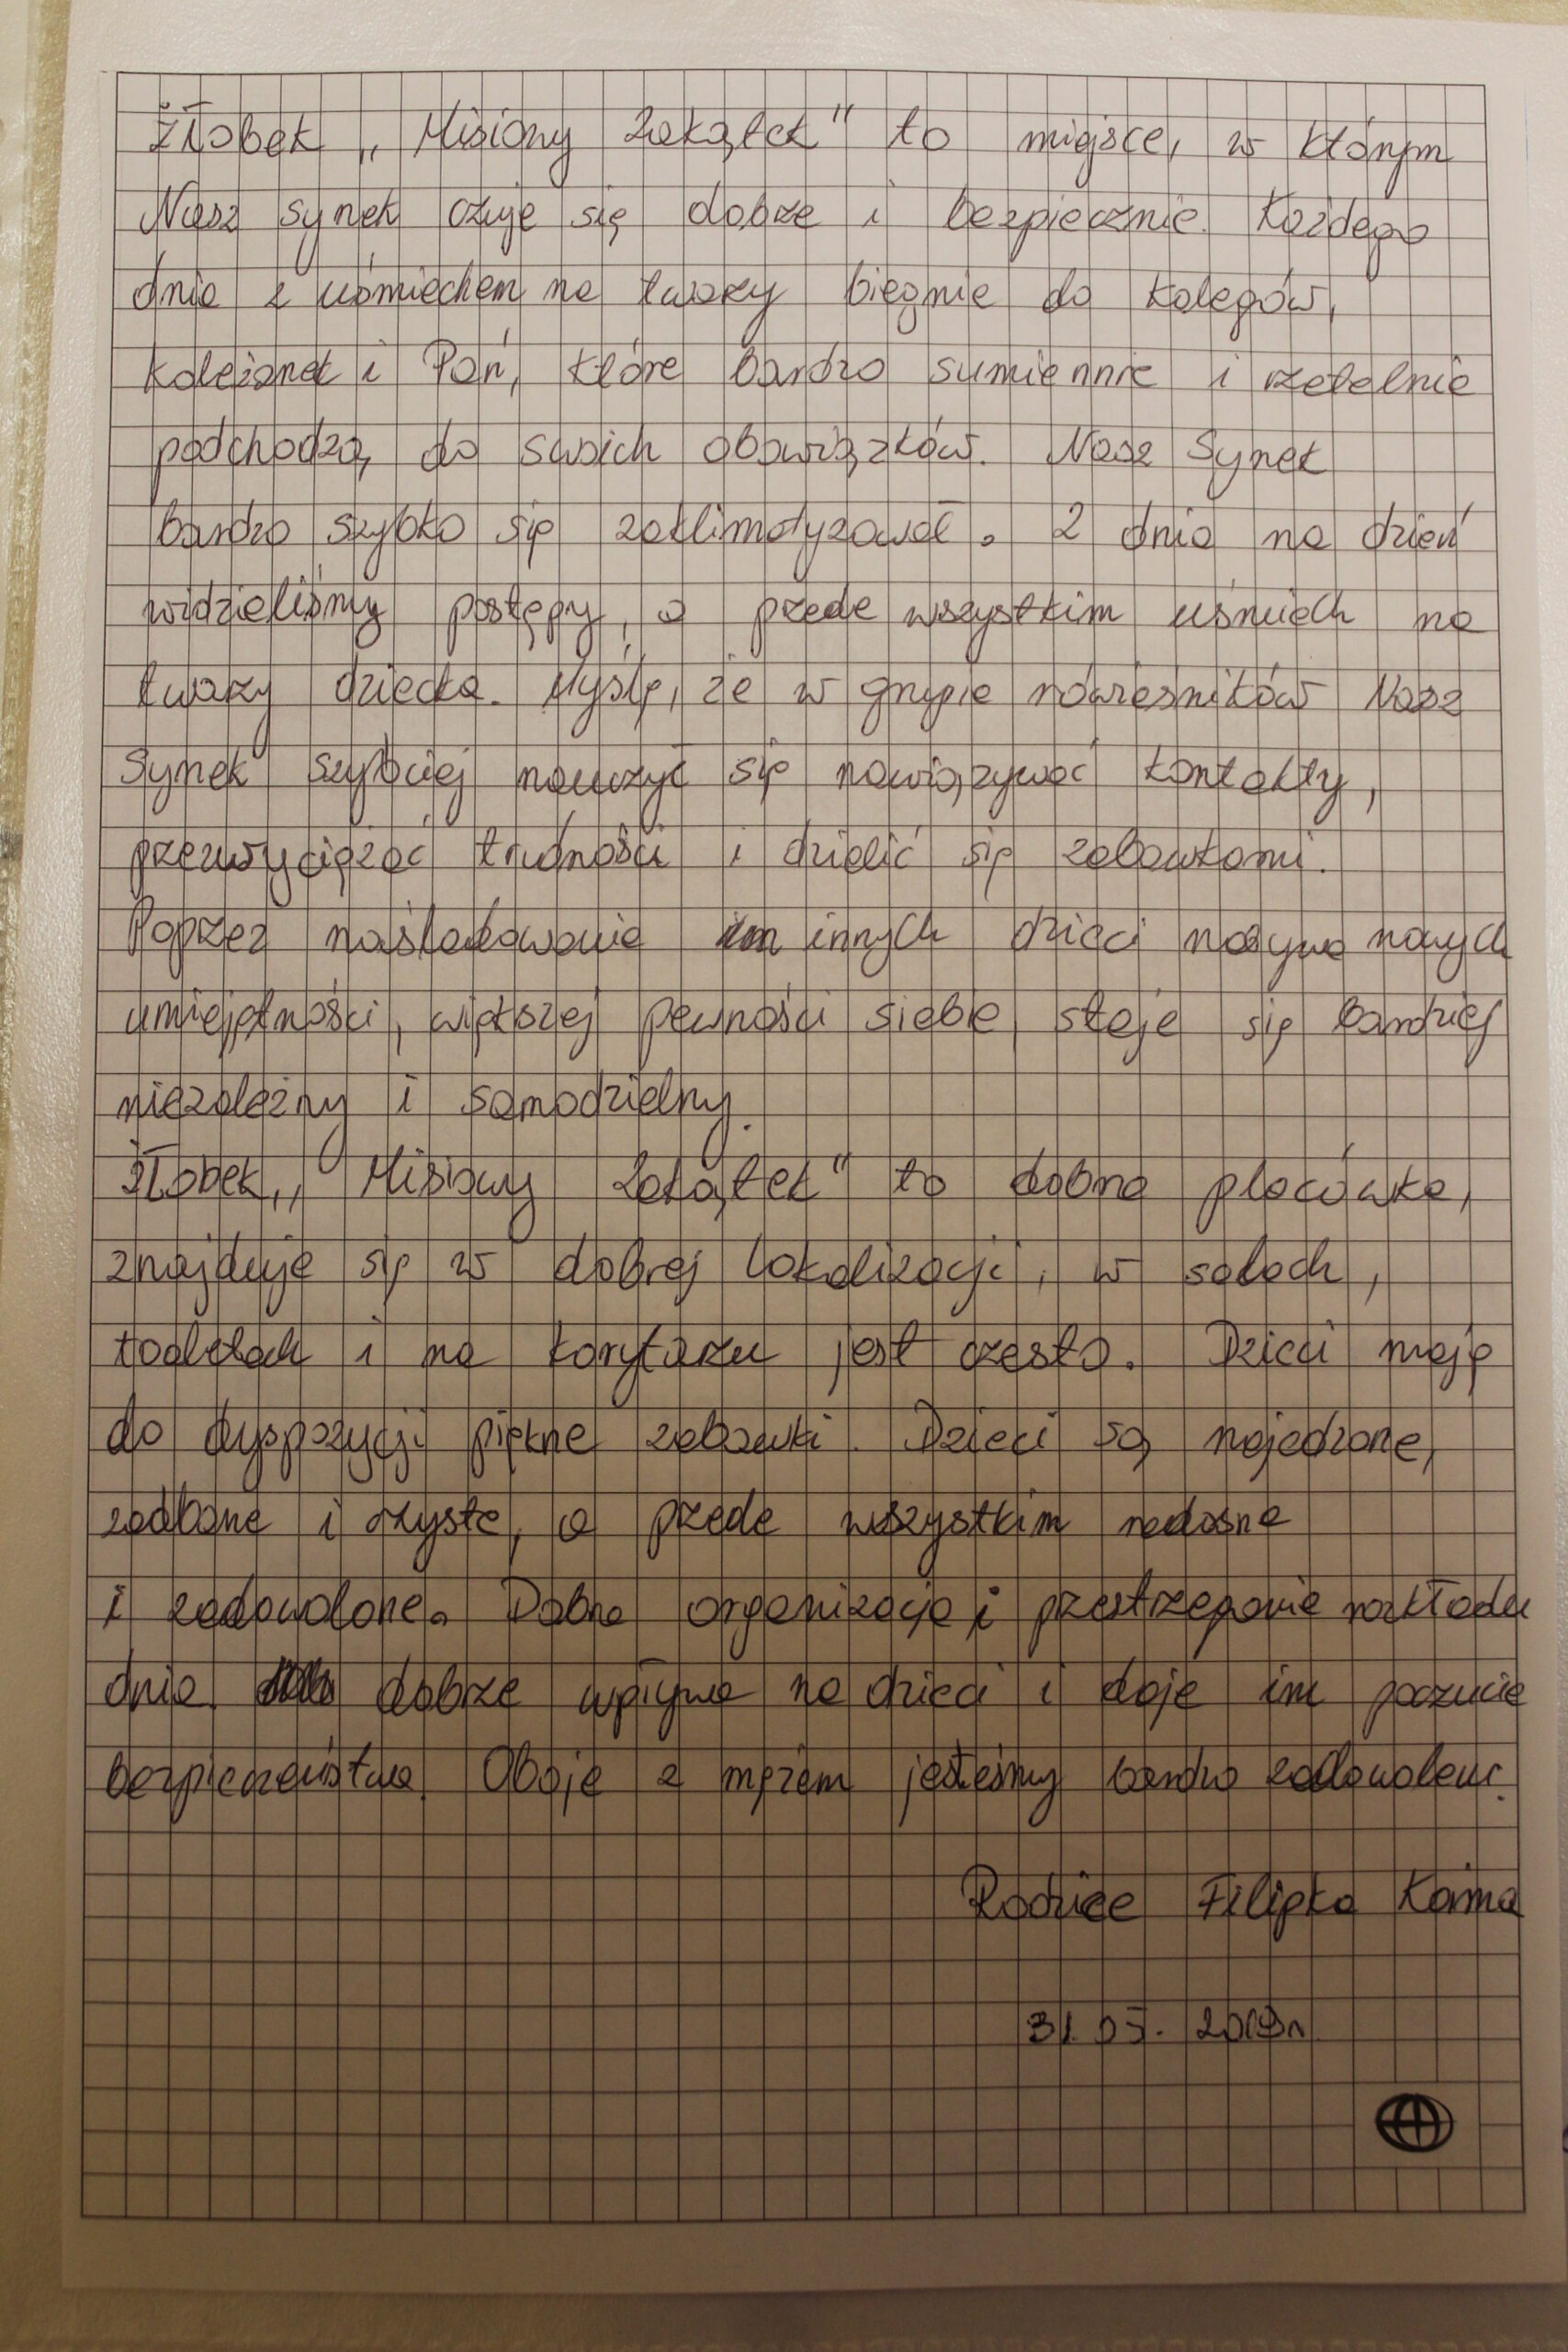 Żłobek „Misiowy Zakątek" to miejsce, w którym
Nasz synek czuje się dobrze i bezpiecznie. Każdego
dnia z uśmiechem na twarzy biegnie do kolegów,
koleżanek i Pań, które bardzo sumiennie i rzetelnie
podchodzą do swoich obowiązków. Nasz Synek
bardzo szybko się zaklimatyzował. Z dnia na dzień
widzieliśmy postępy, a przede wszystkim uśmiech na
twarzy dziecka. Myślę, że w grupie rówieśników Nasz
Synek szybciej nauczył się nawiązywać kontakty,
przezwyciężać trudności i dzielić się zabawkami.
Poprzez naśladowanie innych dzieci nabywa nowych
umiejętności, większej pewności siebie, staje się bardziej
niezależny i samodzielny.
Żłobek „Misiowy Zakątek" to dobra placówka,
znajduje się w dobrej lokalizacji, w salach,
toaletach i na korytarzu jest czysto. Dzieci mają
do dyspozycji piękne zabawki. Dzieci są najedzone,
zadbane i czyste, a przede wszystkim radosne
i zadowolone. Dobra organizacja i przestrzeganie rozkładu
dnia dobrze wpływa na dzieci i daje im poczucie
bezpieczeństwa. Oboje z mężem jesteśmy bardzo zadowoleni.
Rodzice Filipka Kaima
31.05.2019r